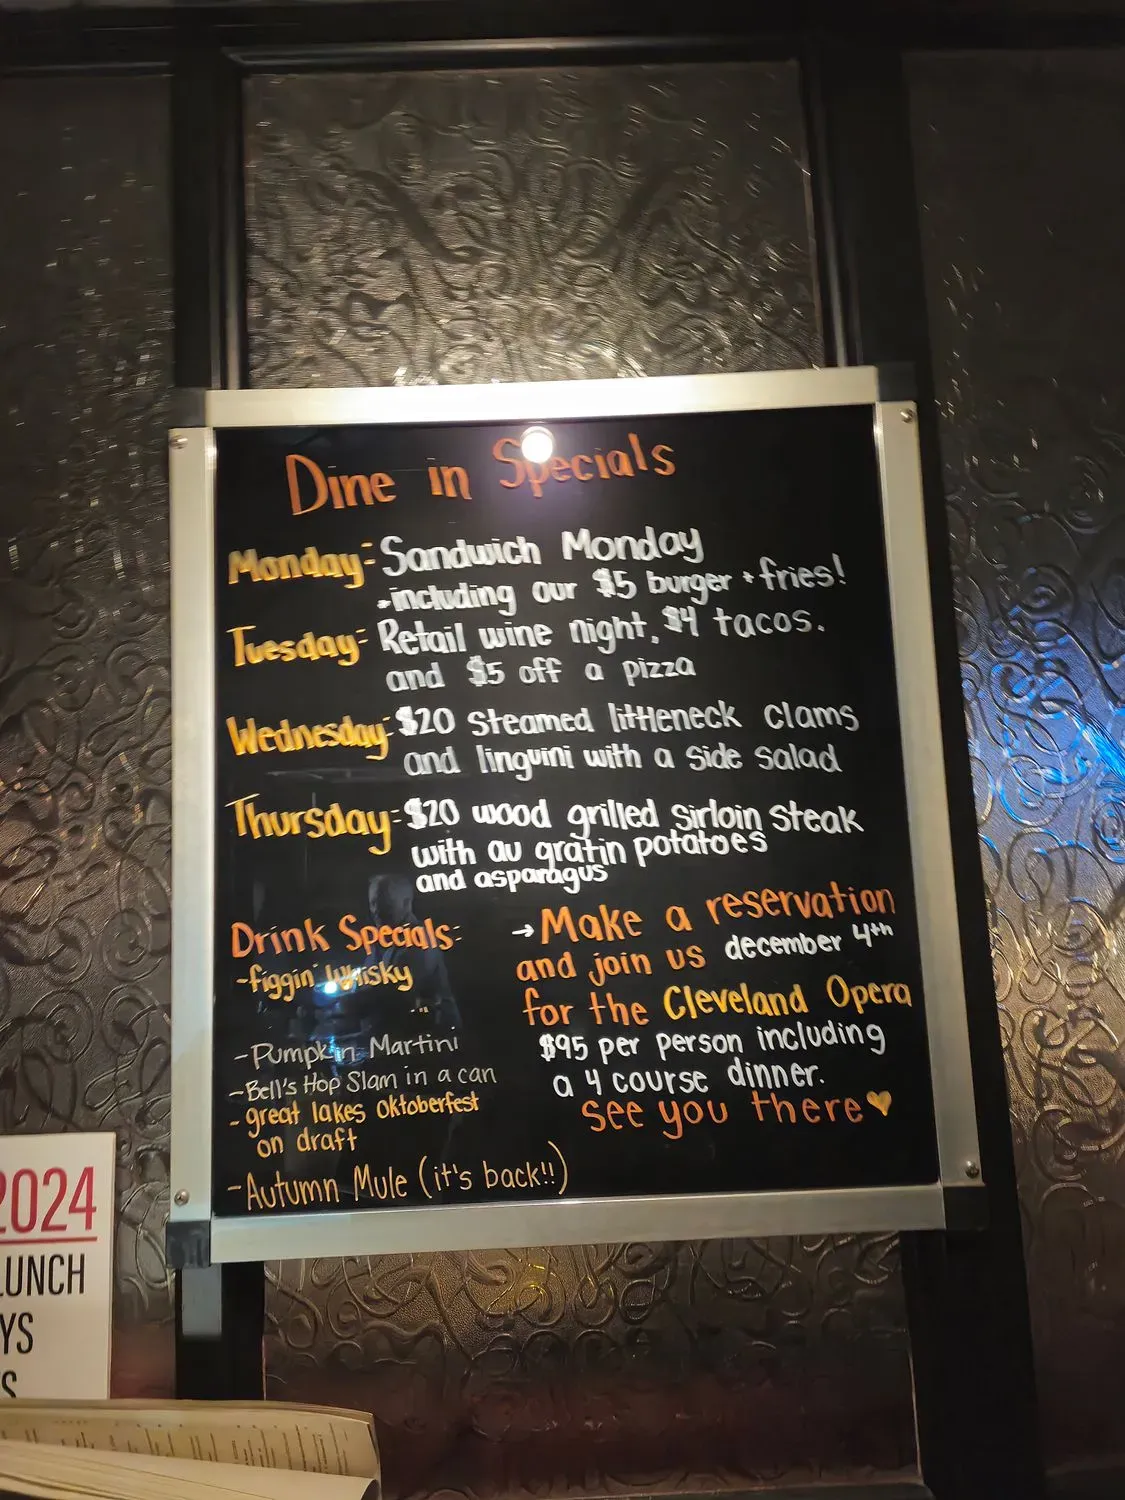 Dine in Specials
Monday- Sandwich Monday
-including our $5 burger + fries!
Tuesday- Retail wine night, $4 tacos.
and $5 off a pizza
Wednesday- $20 steamed littleneck clams
and linguini with a side salad
Thursday- $20 wood grilled sirloin steak
with au gratin potatoes
and asparagus
Drink Specials:
-figgin' whisky
-Pumpkin Martini
-Bell's Hop Slam in a can
- great lakes Oktoberfest
on draft
-Autumn Mule (it's back!!)
→ Make a reservation
and join us december 4th
for the Cleveland Opera
$95 per person including
a 4 course dinner.
see you there
2024
LUNCH
YS
S